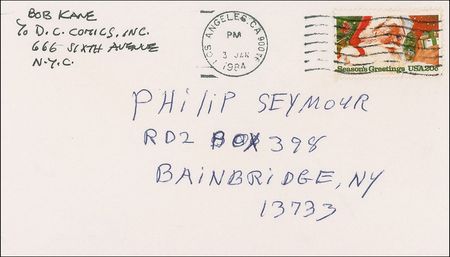 BOB KANE
c/o D.C. COMICS, INC.
666 SIXTH AVENUE
N.Y.C.
LOS ANGELES, CA
PM
3 JAN
1984
Season's Greetings USA 20c
PHILIP SEYMOUR
RD2 BOX 398
BAINBRIDGE, NY
13733